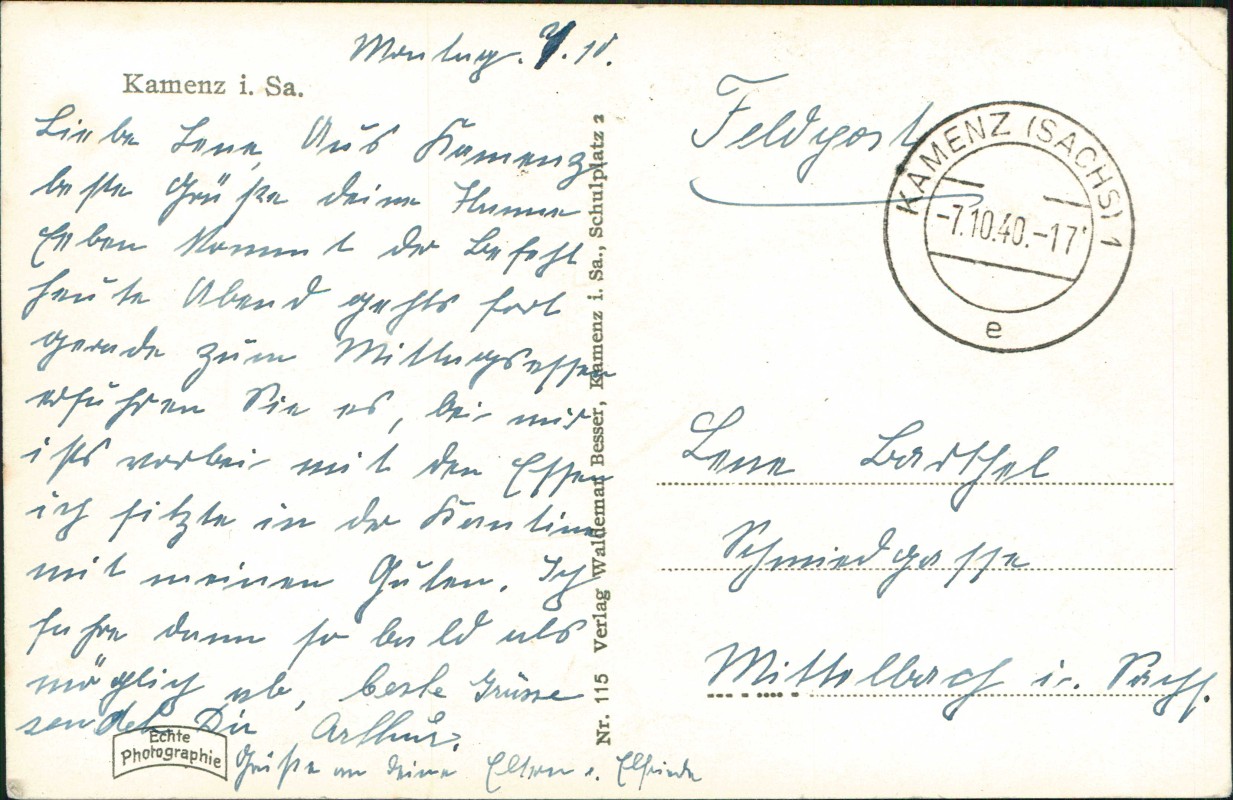 Montag. 7. 10.
Kamenz i. Sa.
Liebe Lene, Aus Kamenz
beste Grüße deine Hanne
Eeben kommt der Befehl
heute Abend gehts fort
gerade zum Mittagsessen
erfuhren Sie es, bei mir
ists vorbei mit den Essen
ich sitzte in der Kantine
mit meinen Guten. Ich
fahre dann so bald als
möglich ab, beste Grüsse
sendet Dir Arthur.
Grüße an deine Eltern u. Elfriede
Echte
Photographie
Nr. 115 Verlag Waldemar Besser, Kamenz i. Sa., Schulplatz 2
Feldpost
KAMENZ (SACHS) 1
-7.10.40.-17
e
Lene Barthel
Schmiedgasse
Mittelbach i. Sachs.